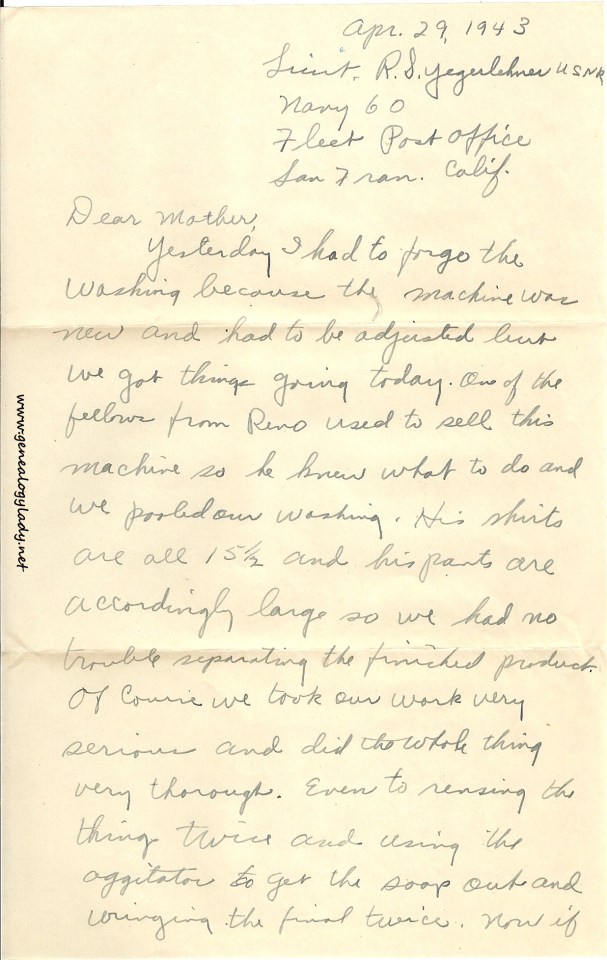 Apr. 29, 1943
Lieut. R.S. Yegerlehner USNR
Navy 60
Fleet Post Office
San Fran. Calif.
Dear Mother,
Yesterday I had to forgo the
washing because the machine was
new and had to be adjusted but
we got things going today. One of the
fellows from Reno used to sell this
machine so he knew what to do and
we pooled our washing. His shirts
are all 15½ and his pants are
accordingly large so we had no
trouble separating the finished product.
Of course we took our work very
serious and did the whole thing
very thorough. Even to rensing the
things twice and using the
aggitator to get the soap out and
wringing the final twice. Now if
www.genealogylady.net